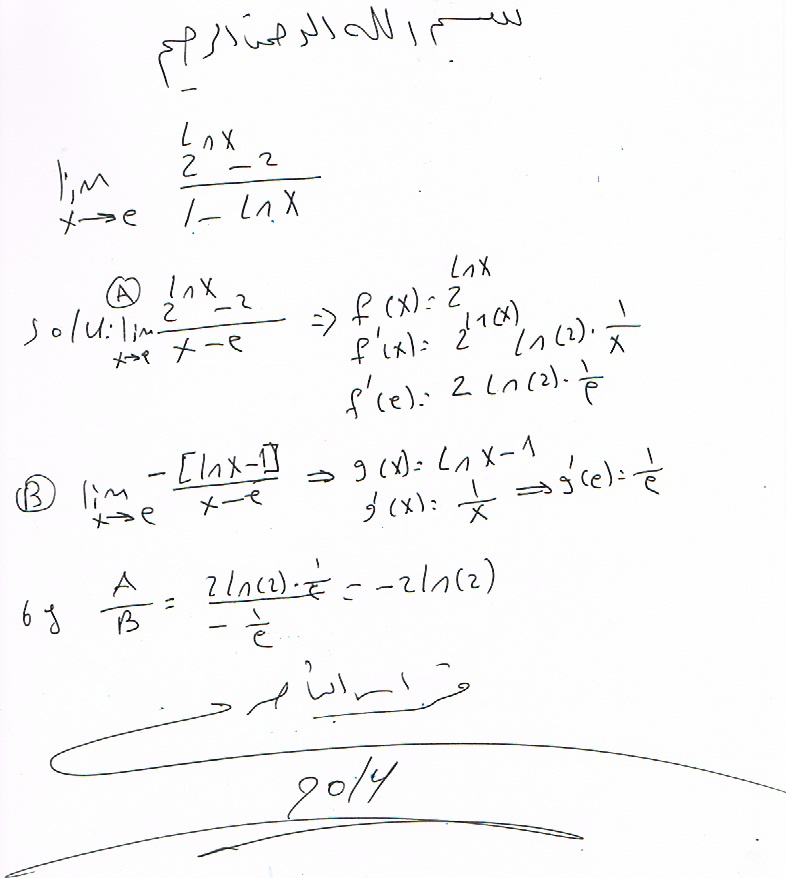 بسم الله الرحمن الرحيم
lim x→e (2^(lnx) - 2) / (1 - lnx)
solu: Ⓐ lim x→e (2^(lnx) - 2) / (x - e) ⇒ f(x) = 2^(lnx)
f'(x) = 2^(ln(x)) ln(2) · 1/x
f'(e) = 2 ln(2) · 1/e
Ⓑ lim x→e -[lnx-1] / (x-e) ⇒ g(x) = lnx-1
g'(x) = 1/x ⇒ g'(e) = 1/e
by A/B = (2ln(2) · 1/e) / (- 1/e) = -2ln(2)